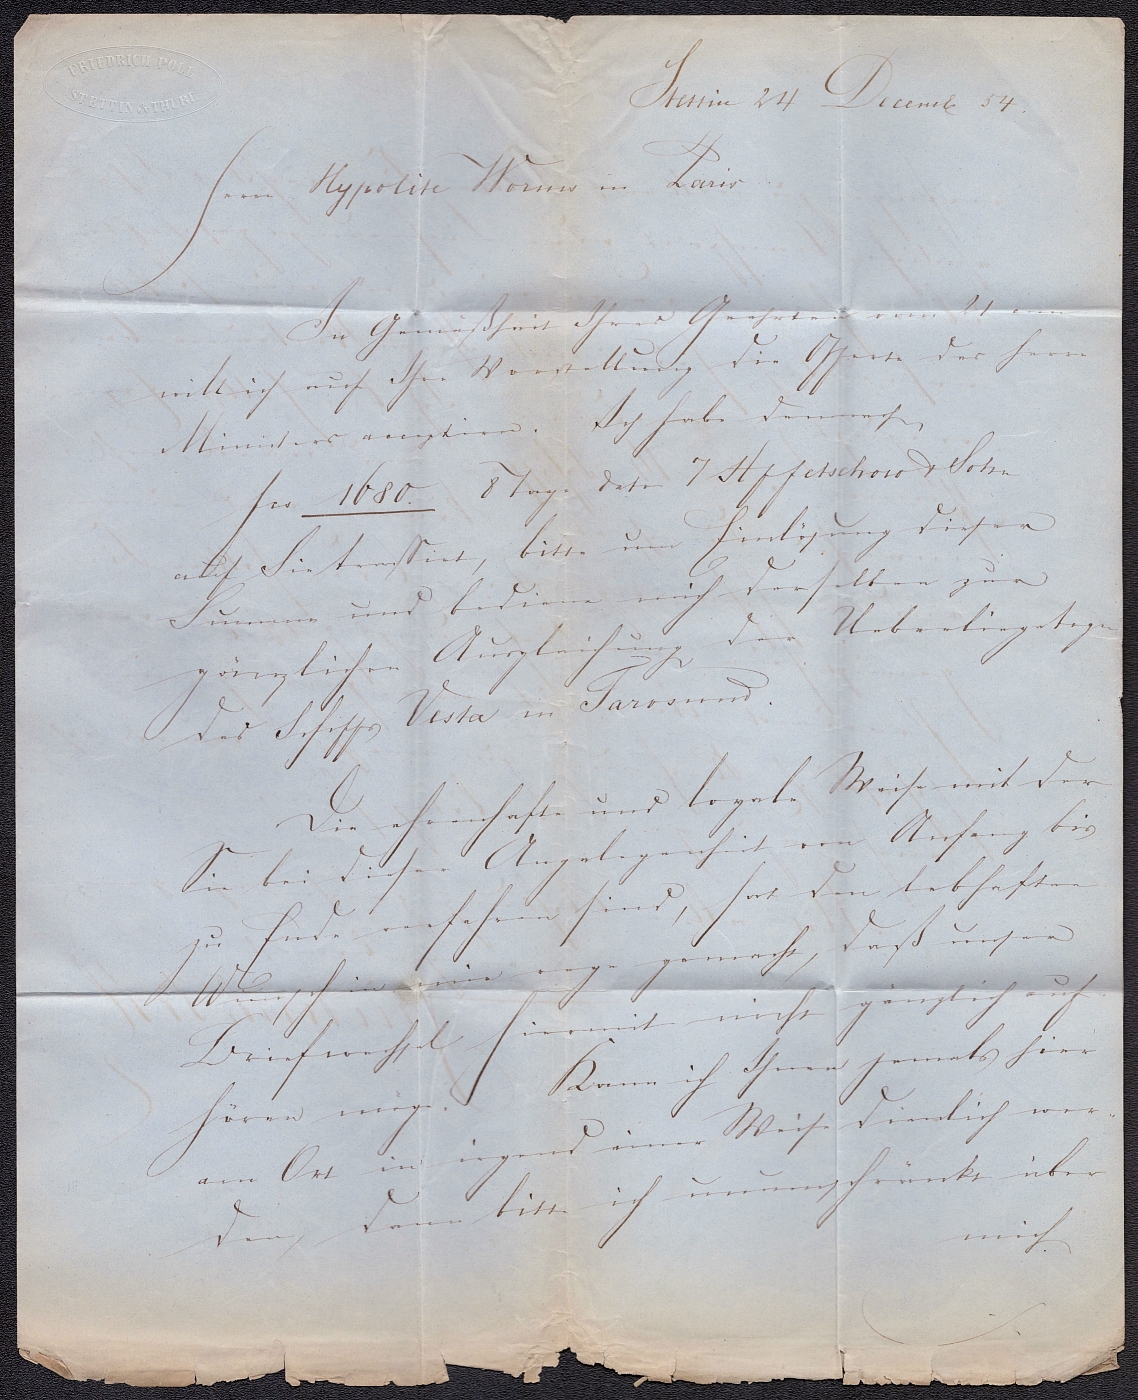 FRIEDRICH POLL
STETTIN
Stettin 24 Decemb 54.
Herrn Hypolite Worms in Paris
In Gemäßheit Ihres Geehrten vom 21 
will ich auf Ihre Vorstellung die Offerte des Herrn
Ministers acceptiren. Ich habe demnach
frcs 1680. 8 Tage dato & Sohn
auf Sie trassirt, bitte um Einlösung dieser
Summe und bediene mich derselben zur
gänzlichen Ausgleichung der Ueberliegetage
des Schiffs Vesta in Farosund.
Die ehrenhafte und loyale Weise mit der
Sie bei dieser Angelegenheit von Anfang bis
zu Ende verfahren sind, hat den lebhaften
Wunsch in mir rege gemacht, daß unser
Briefwechsel hiermit nicht gänzlich auf-
hören möge. Kann ich Ihnen jemals hier
am Ort in irgend einer Weise dienlich wer-
den, dann bitte ich unumschränkt über
mich